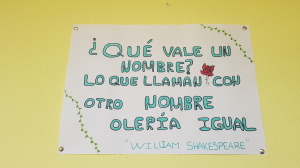 ¿QUÉ VALE UN
NOMBRE?
LO QUE LLAMAN CON
OTRO NOMBRE
OLERÍA IGUAL
"WILLIAM SHAKESPEARE"